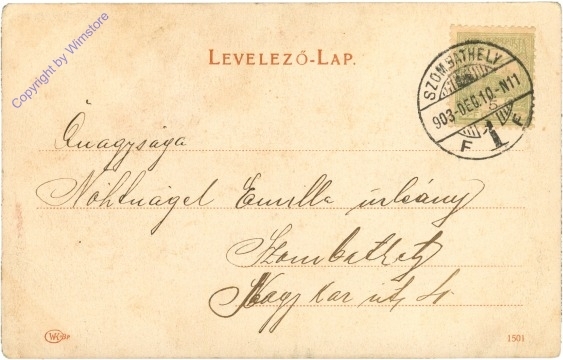 Copyright by Wimstore
LEVELEZŐ-LAP.
SZOMBATHELY
903-DEC.10.-N11
5
F 1 F
Őnagysága
Nóhtnágel Emilla úrleány
Szombathely
Nagy Kar út 4.
1501